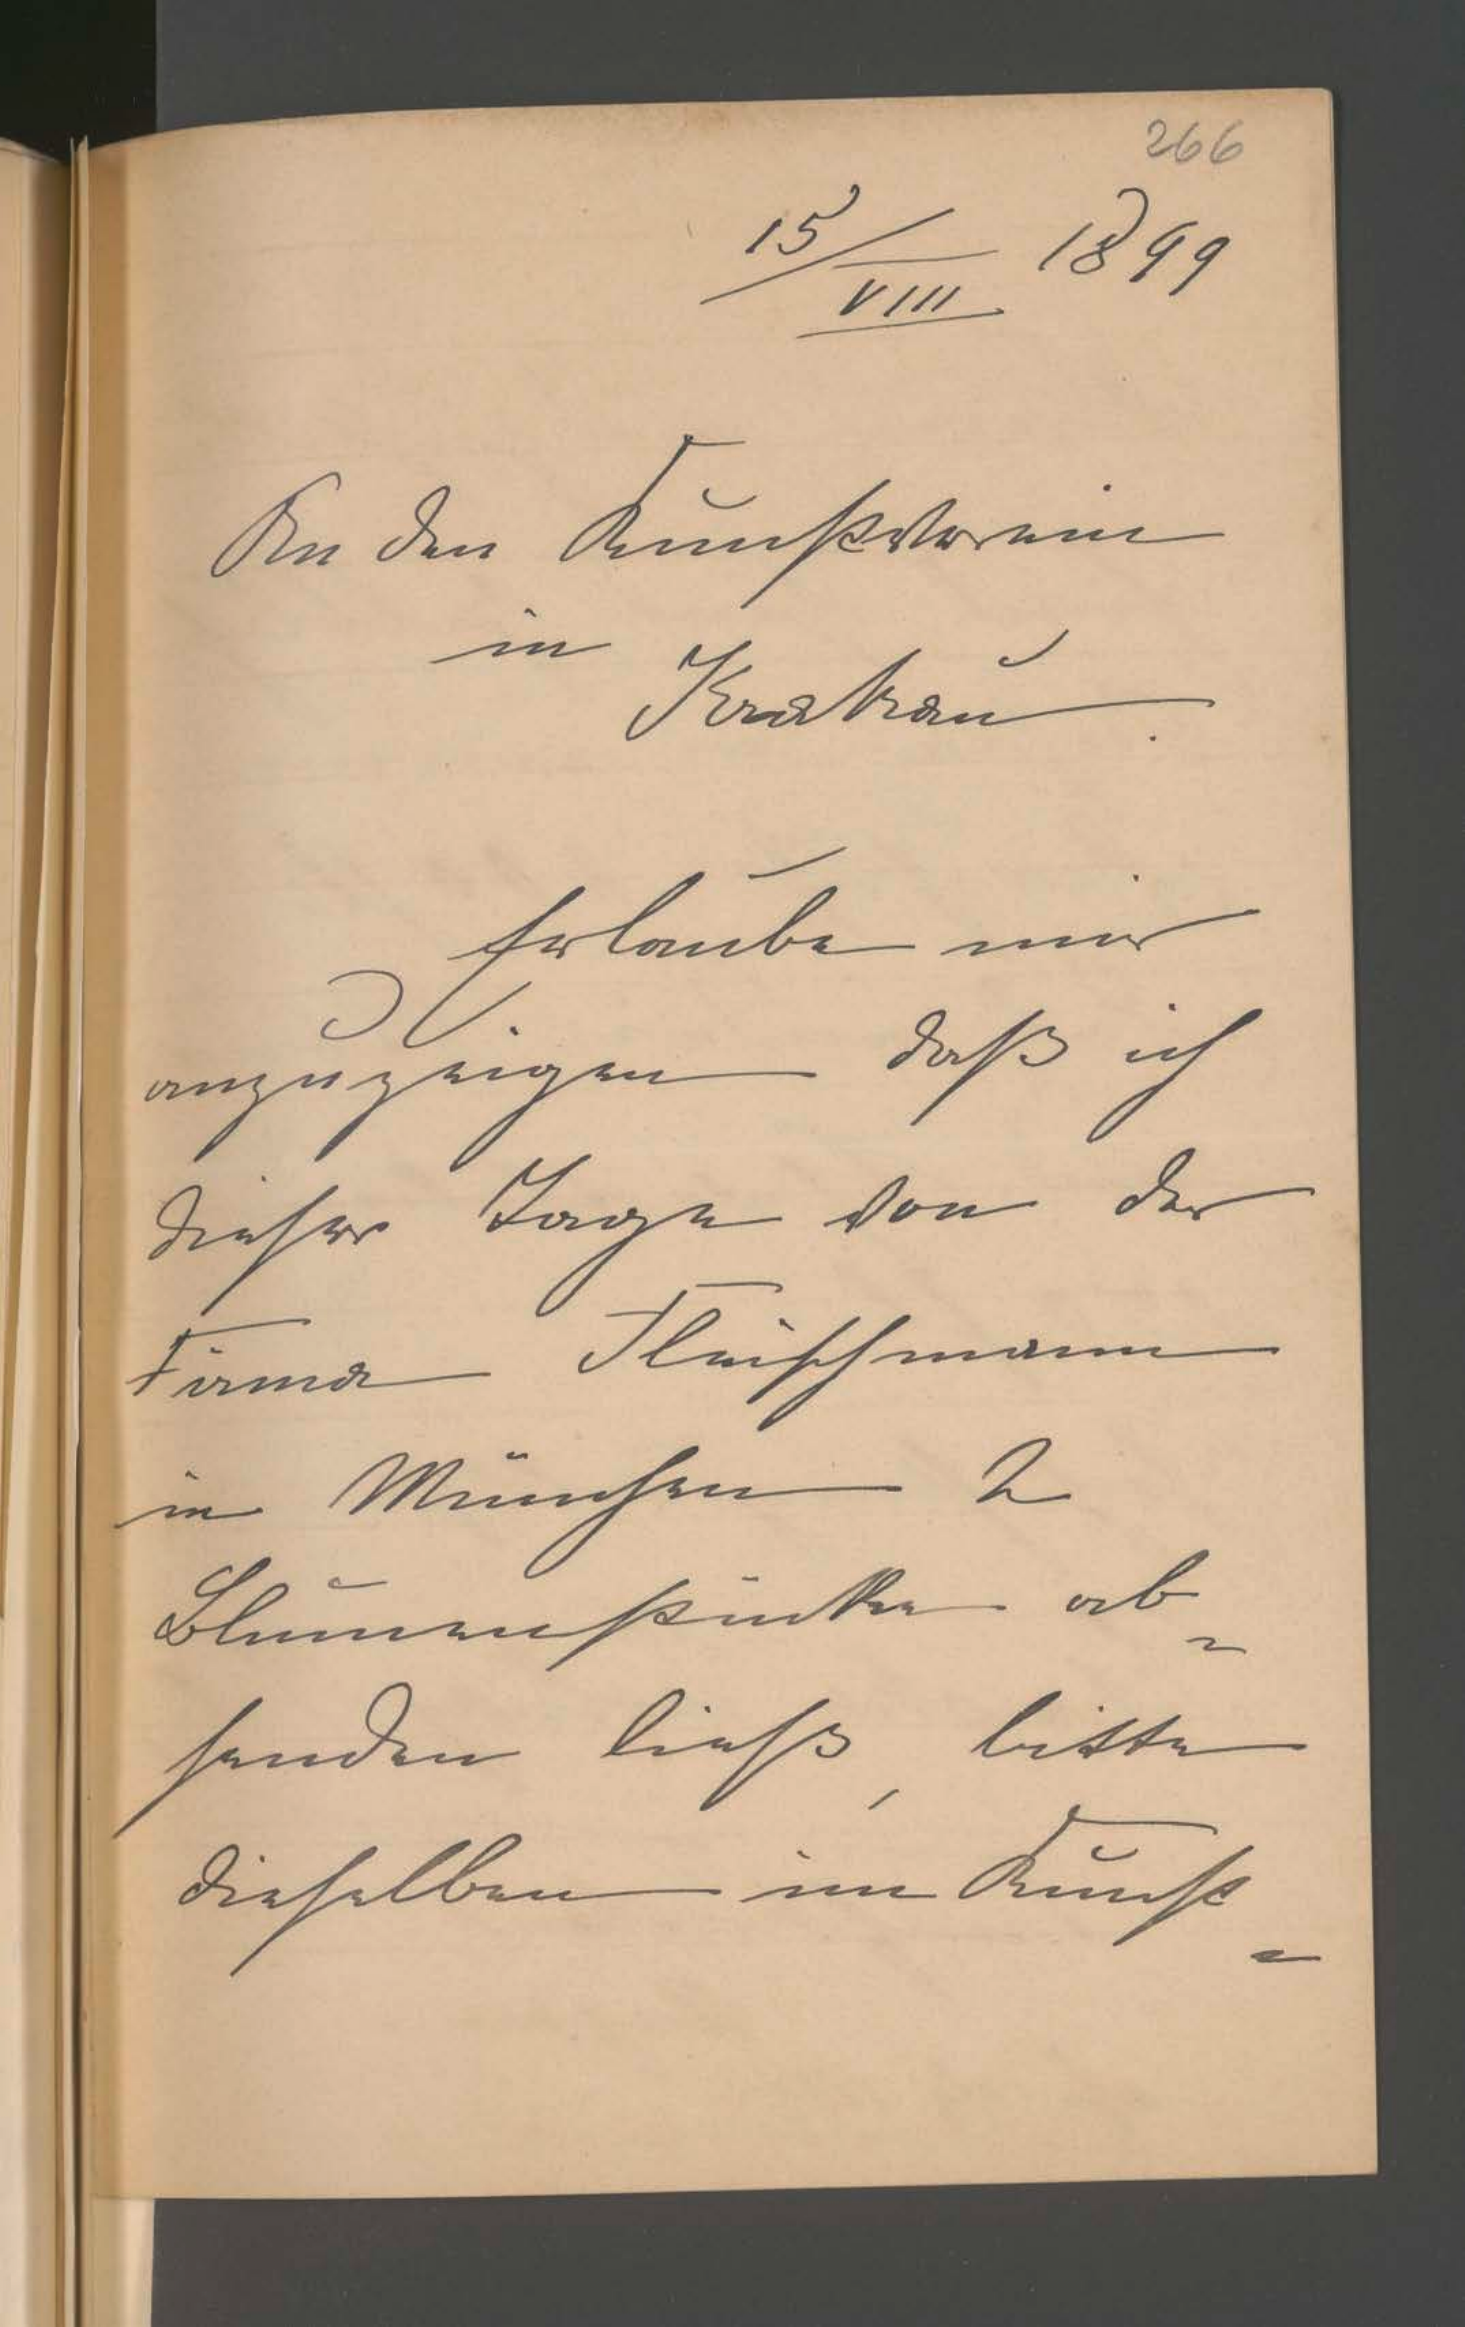 266
15/VIII 1899
An den Kunstverein
in Krakau.
Erlaube mir
anzuzeigen daß ich
dieser Tage von der
Firma Fleischmann
in München 2
Blumenstücke ab-
senden ließ, bitte
dieselben im Kunst-